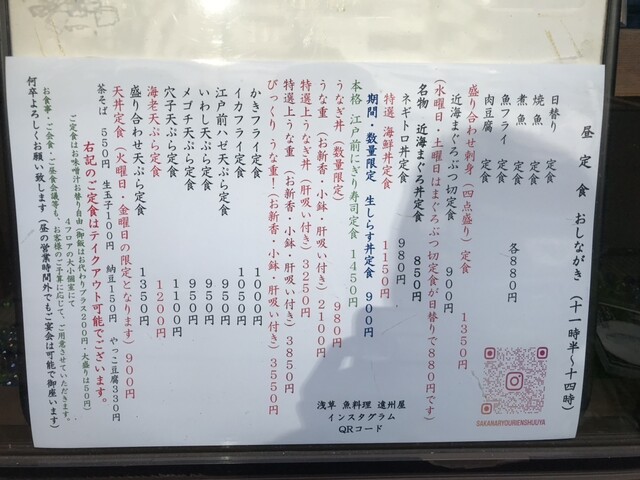 昼定食 おしながき (十一時半〜十四時)
日替り 定食
焼魚 定食
煮魚 定食 各880円
魚フライ 定食
肉豆腐 定食
盛り合わせ刺身(四点盛り)定食 1350円
近海まぐろぶつ切定食 900円
(水曜日・土曜日はまぐろぶつ切定食が日替りで880円です)
名物 近海まぐろ丼定食 850円
ネギトロ丼定食 980円
特選 海鮮丼定食 1150円
期間・数量限定 生しらす丼定食 900円
本格 江戸前にぎり寿司定食 1450円
うなぎ丼(数量限定) 980円
うな重(お新香・小鉢・肝吸い付き)2100円
特選上うなぎ丼(肝吸い付き)3250円
特選上うな重(お新香・小鉢・肝吸い付き)3850円
びっくり うな重!(お新香・小鉢・肝吸い付き)3550円
かきフライ定食 1000円
イカフライ定食 1050円
江戸前ハゼ天ぷら定食 950円
いわし天ぷら定食 950円
メゴチ天ぷら定食 950円
穴子天ぷら定食 1100円
海老天ぷら定食 1200円
盛り合わせ天ぷら定食 1350円
天丼定食(火曜日・金曜日の限定となります)900円
茶そば 550円 生玉子100円 納豆150円 やっこ豆腐330円
右記のご定食はテイクアウト可能でございます。
ご定食はお味噌汁お替り自由(御飯はお代わりプラス200円・大盛りは50円)
4フロアの大小個室にて
お食事・ご会食・ご昼食会議等も、お客様のご予算に応じて、ご用意させていただきます。
何卒よろしくお願い致します(昼の営業時間外でもご宴会は可能で御座います)
SAKANARYOURIENSHUUYA
浅草 魚料理 遠州屋
インスタグラム
QRコード